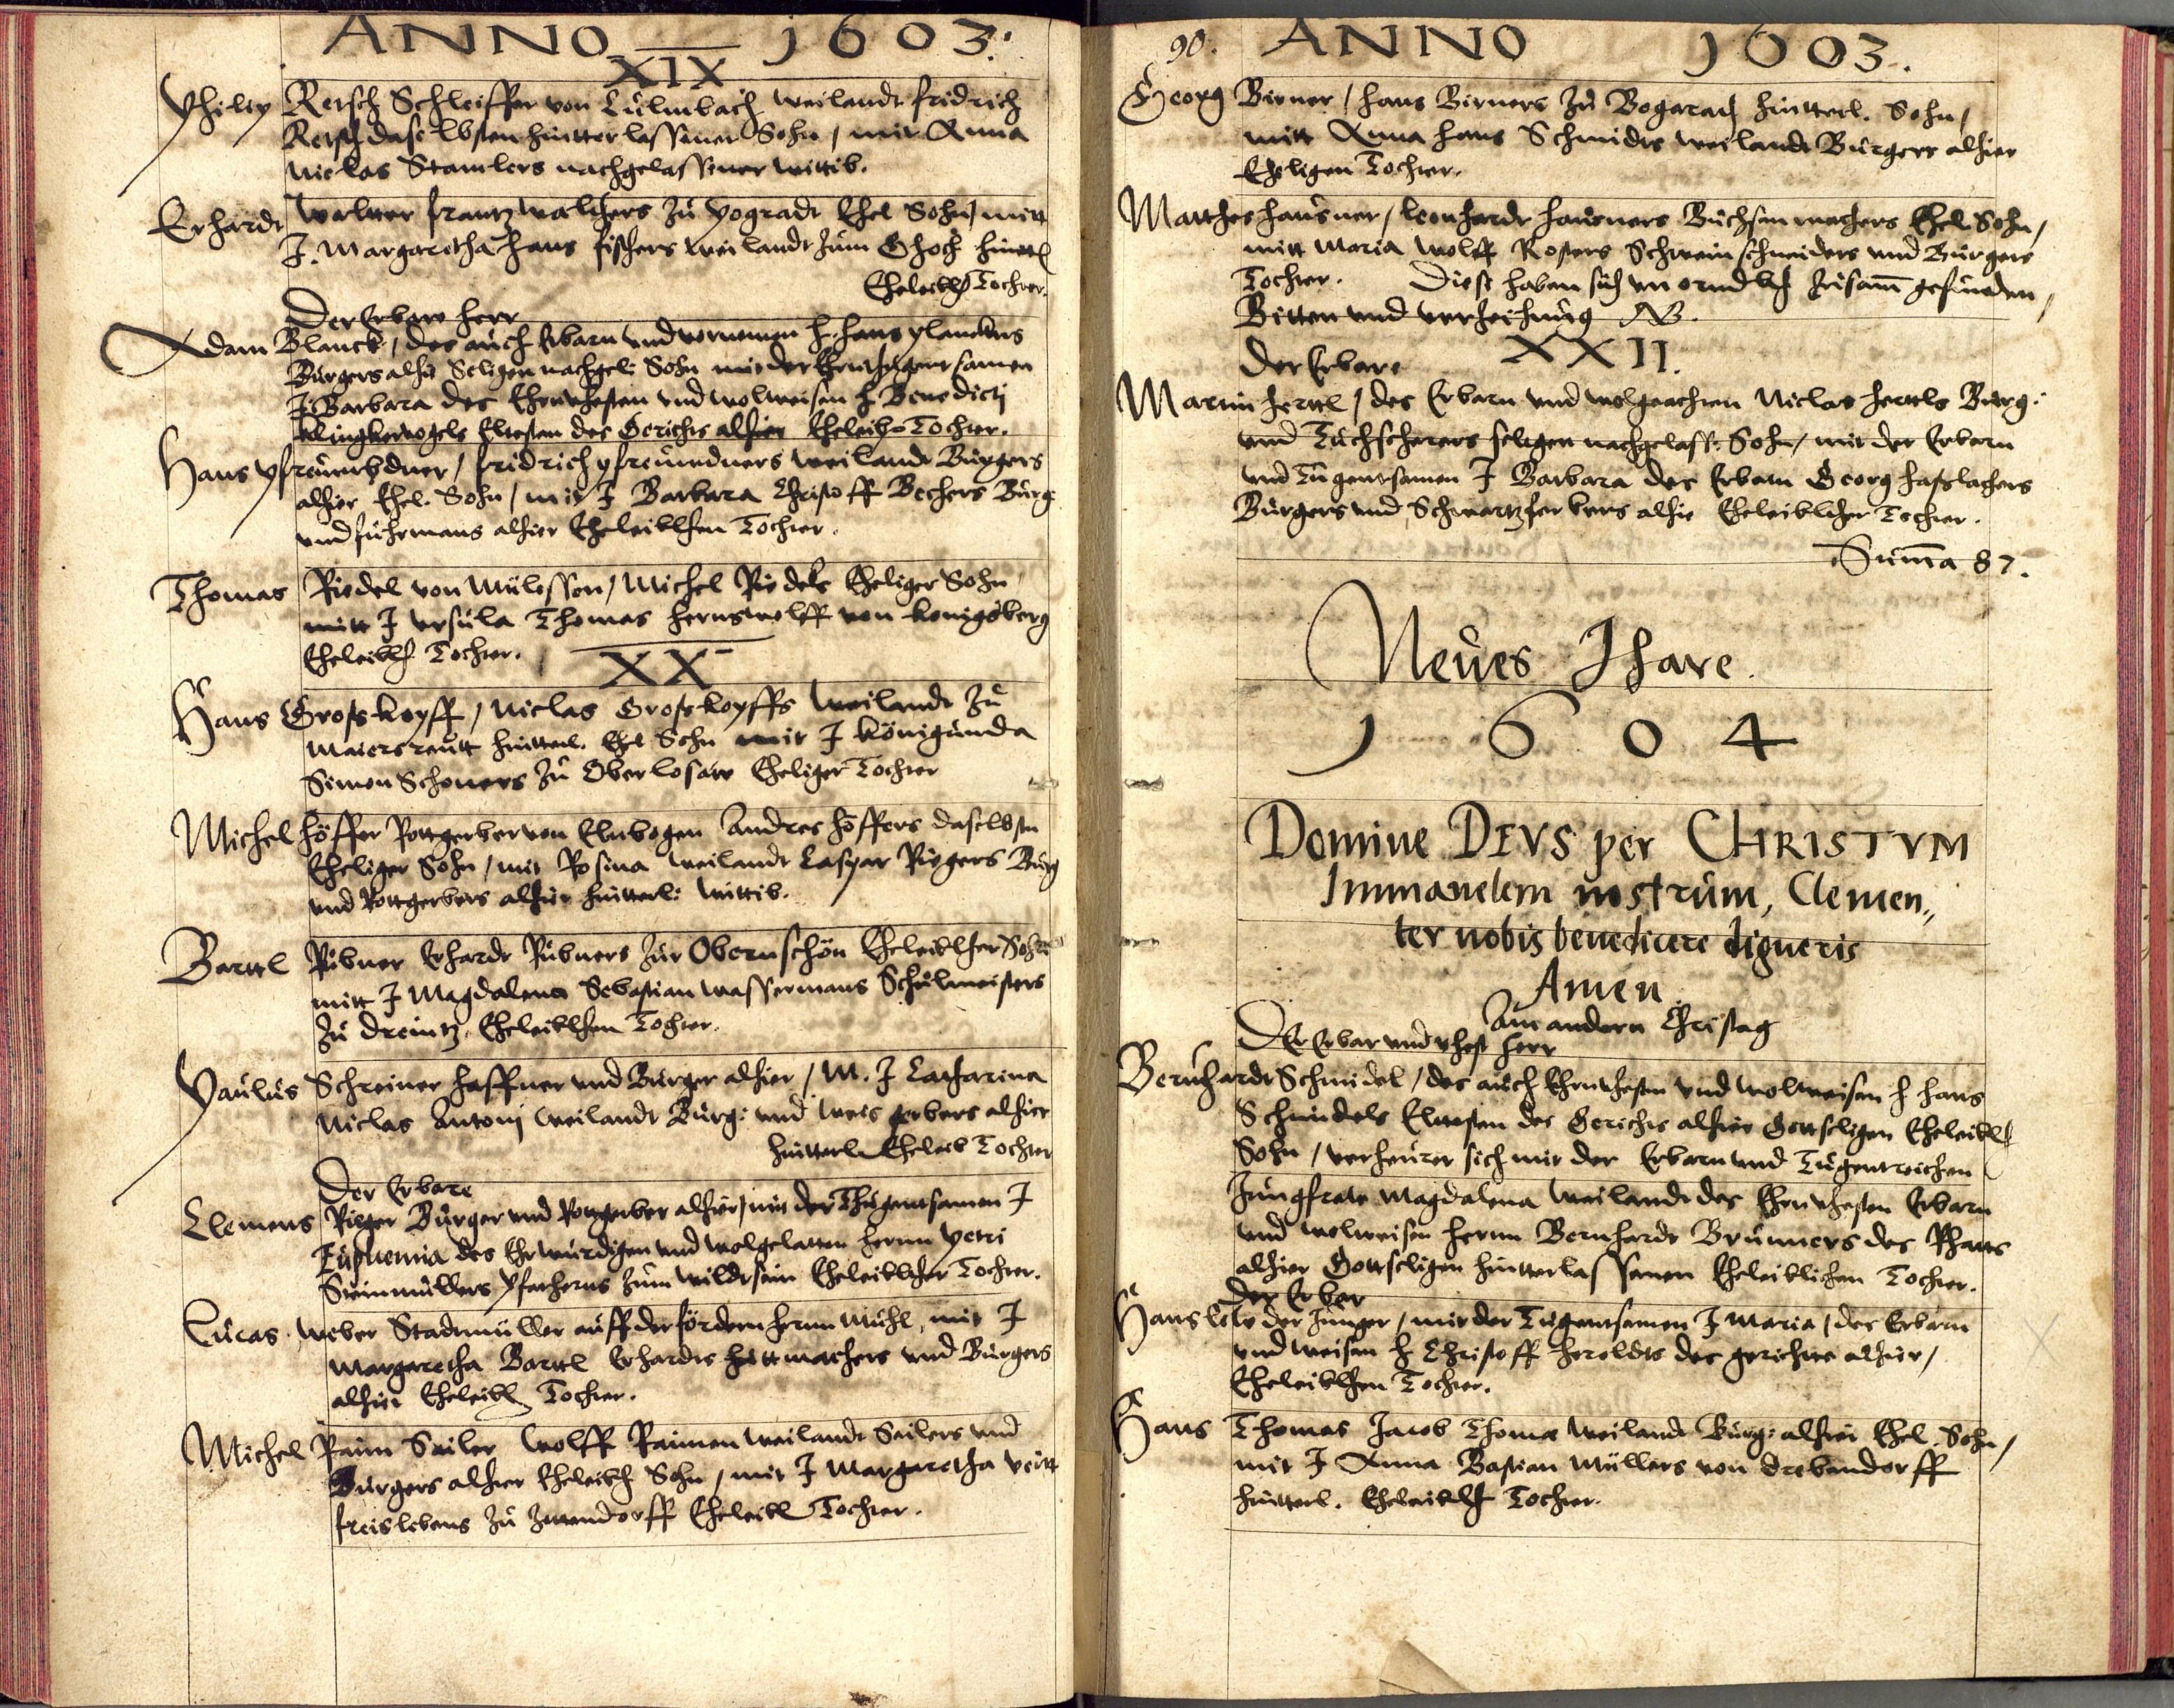 ANNO 1603.
XIX
Philip Retsch Schleiffer von Culmbach weilandt fridrich
Retsch daselbsten hintterlassener Sohn / mit Anna
Niclas Stamlers nachgelassener wittib.
Erhardt Walther frantz Walthers zu Pogradt Ehel Sohn / mitt
J. Margaretha Hans fischers weilandt zum
Eheleibl Tochter.
Der Erbare Herr
Adam Blanck / des auch Erbarn und vernemen H. Hans
Bürgers alhie Seligen nachgel: Sohn mit der Ehrntugentsamen
J Barbara des Ehrnvhesten und wolweisen H Benedicti
Klinghervogels Eltesten des Gerichts alhier Eheleib. Tochter.
Hans Pfreumbdner / fridrich Pfreumdners weilandt Bürgers
alhier Ehel. Sohn / mit J Barbara Christoff Bechers Burg
und fuhrmans alhier Eheleiblichen Tochter.
Thomas Riedel von Mülessen / Michel Riedels Eheliger Sohn
mitt J Ursula Thomas Hernswolff von Konigsberg
Eheleibl Tochter.
XX
Hans Groskopff / Niclas Groskopffs weilandt zu
Maiersreutt hintterl. Ehel Sohn mit J Königunda
Simon Schoners zu Oberlosaw Eheliger Tochter
Michel Höffer Rottgerber von Elnbogen Andres Höffers daselbsten
Eheliger Sohn / mit Rosina weilandt Caspar Rügers Bürg
und Rottgerbers alhier hintterl: wittib.
Barttl Rübner Erhardt Rübners zur Obernschön Eheleiblicher Sohn
mitt J Magdalena Sebastian Wassermans Schulmeisters
zu Dreintz. Eheleiblichen Tochter.
Paulus Schreiner Haffner und Burger alhier / M. J Catharina
Niclas Antonj weilandt Bürg: und Weisgerbers alhier
hintterl Eheleib Tochter
Der Erbare
Clemens Rieger Bürger und Rottgerber alhier / mit der Thugentsamen J
Euphemia des Ehrwürdigen und wolgelarten Herrn Petri
Steinmüllers Pfarherns zum Wildstein Eheleiblicher Tochter.
Lucas Weber Stadtmüller auff der fördern Herrn Mühl, mit J
Margaretha Barttl Erhardts Huttmachers und Bürgers
alhier Eheleibl Tochter.
Michel Raim Seiler Wolff Raimen weilandt Seilers und
Bürgers alhier Eheleibl Sohn / mit J Margaretha Veitt
freislebens zu Zettendorff Eheleibl Tochter.
90. ANNO 1603.
Georg Birner / Hans Birners zu Bogarad hintterl. Sohn /
mitt Anna Hans Schmidts weilandt Bürgers alhier
Eheligen Tochter.
Matthes Hausner / Leonhardt Hausners Büchsenmachers Ehel Sohn /
mitt Maria Wolff Rosters Schweinschneiders und Bürgers
Tochter. Diese haben sich unordentlich zusam gefunden,
Bitten und verzeihung NB.
XXII.
Der Erbare
Martin Herttl / des Erbarn und wolgeachten Niclas Herttels Bürg:
und Tuchscherers seligen nachgelass: Sohn / mit der Erbarn
und Tugentsamen J Barbara des Erbarn Georg Haslachers
Bürgers und Schwartzferbers alhie Eheleiblicher Tochter.
Summa 87.
Neues Jhare.
1604
Domine DEVS per CHRISTVM
Immanuelem nostrum, Clemen„
ter nobis benedicere digneris
Amen.
Am andern Christag
Der Erbar und vhest Herr
Bernhardt Schmidel / des auch Ehrnvhesten und wolweisen H Hans
Schmidels Eltesten des Gerichts alhier Gottseligen Eheleibl
Sohn / verheuret sich mit der Erbarn und Tugentreichen
Jungfraw Magdalena weilandt des Ehrnvhesten Erbarn
und wolweisen Herrn Bernhardt Brunners des Rhatts
alhier Gottseligen hintterlassenen Eheleiblichen Tochter.
Der Erbar
Hans Lew der Junger / mit der Tugentsamen J Maria / des Erbarn
und weisen H Christoff Heroldts des gerichts alhier /
Eheleiblichen Tochter.
Hans Thomas Jacob Thomae weilandt Bürg: alhier Ehel. Sohn /
mit J Anna Bastian Müllers von Drebendorff
hintterl. Eheleiblich Tochter.